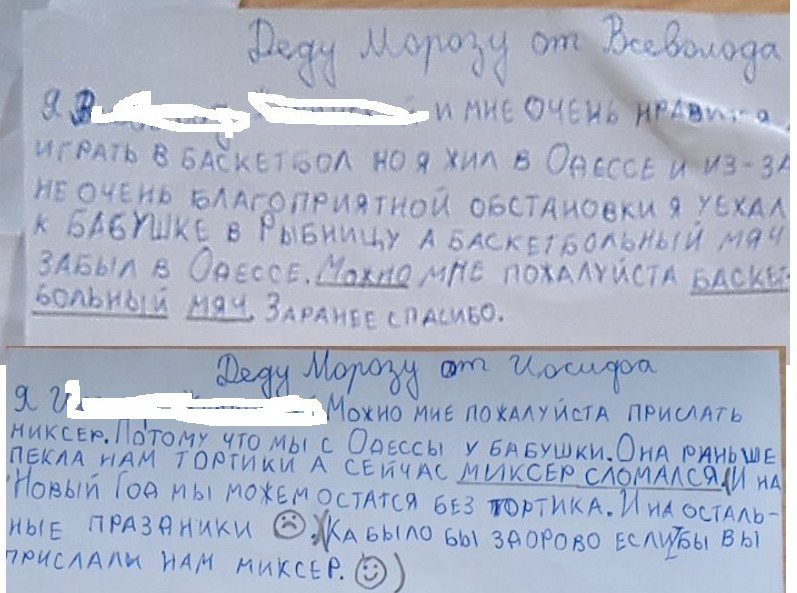 Деду Морозу от Всеволода
Я И МНЕ ОЧЕНЬ НРАВИТСЯ
ИГРАТЬ В БАСКЕТБОЛ НО Я ЖИЛ В ОДЕССЕ И ИЗ-ЗА
НЕ ОЧЕНЬ БЛАГОПРИЯТНОЙ ОБСТАНОВКИ Я УЕХАЛ
К БАБУШКЕ В РЫБНИЦУ А БАСКЕТБОЛЬНЫЙ МЯЧ
ЗАБЫЛ В ОДЕССЕ. МОЖНО МНЕ ПОЖАЛУЙСТА БАСКЕТ-
БОЛЬНЫЙ МЯЧ. ЗАРАНЕЕ СПАСИБО.
Деду Морозу от Иосифа
Я МОЖНО МНЕ ПОЖАЛУЙСТА ПРИСЛАТЬ
МИКСЕР. ПОТОМУ ЧТО МЫ С ОДЕССЫ У БАБУШКИ. ОНА РАНЬШЕ
ПЕКЛА НАМ ТОРТИКИ А СЕЙЧАС МИКСЕР СЛОМАЛСЯ. И НА
НОВЫЙ ГОД МЫ МОЖЕМ ОСТАТСЯ БЕЗ ТОРТИКА. И НА ОСТАЛЬ-
НЫЕ ПРАЗДНИКИ ☹. КА БЫЛО БЫ ЗДОРОВО ЕСЛИ БЫ ВЫ
ПРИСЛАЛИ НАМ МИКСЕР. ☺)